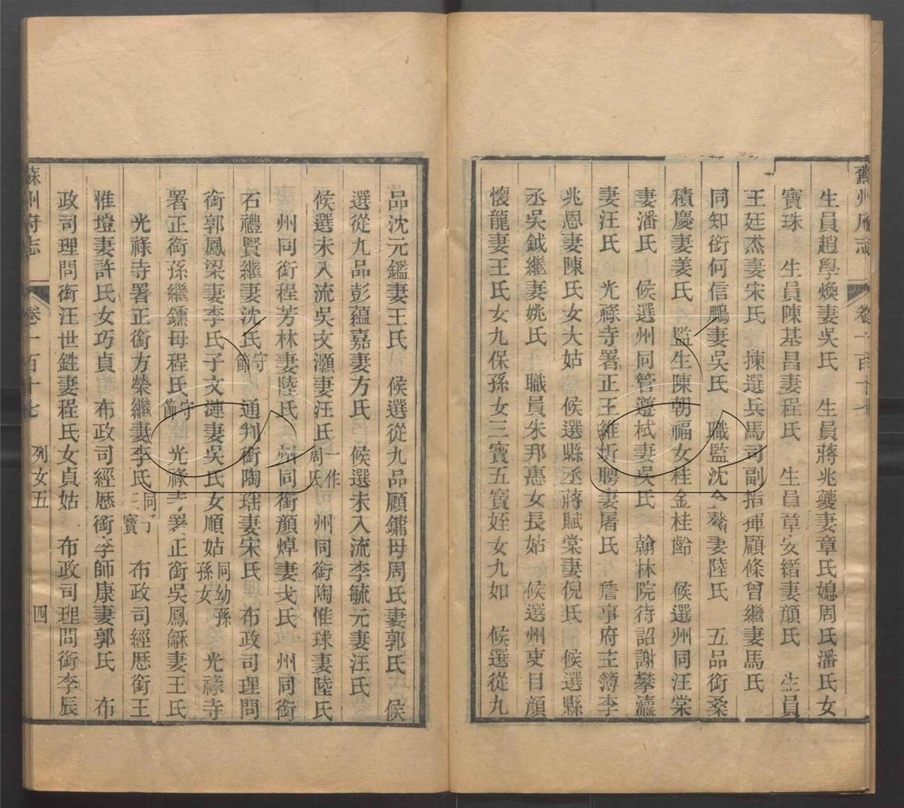 生員趙學煥妻吳氏　生員蔣兆夔妻章氏媳周氏潘氏女
寶珠　生員陳基昌妻程氏　生員章安緒妻顏氏　生員
王廷杰妻宋氏　揀選兵馬司副指揮顧條曾繼妻馬氏
同知銜何信鵬妻吳氏　職監沈妻陸氏　五品銜桑
積慶妻姜氏　監生陳朝福女桂金桂齡　候選州同汪棠
妻潘氏　候選州同管遵栻妻吳氏　翰林院待詔謝攀瀛
妻汪氏　光祿寺署正王維妻屠氏　詹事府主簿李
兆恩妻陳氏女大姑　候選縣丞蔣賦棠妻倪氏　候選縣
丞吳鉞繼妻姚氏　職員朱邦惠女長姑　候選州吏目顏
懷龍妻王氏女九保孫女三寶五寶姪女九如　候選從九
品沈元鑑妻王氏　候選從九品顧鏞母周氏妻郭氏　候
選從九品彭蘊嘉妻方氏　候選未入流李毓元妻汪氏
候選未入流吳文灝妻汪氏一作周氏　州同銜陶惟球妻陸氏
州同銜程芳林妻陸氏　州同銜顏焯妻戈氏　州同銜
石禮賢繼妻沈氏守節　通判銜陶瑤妻宋氏　布政司理問
銜郭鳳梁妻李氏子文漣妻吳氏女順姑同幼孫孫女　光祿寺
署正銜孫繼母程氏守節　光祿寺署正銜吳鳳龢妻王氏
光祿寺署正銜方榮繼妻李氏同子三寶　布政司經歷銜王
惟壇妻許氏女巧貞　布政司經歷銜李師康妻郭氏　布
政司理問銜汪世甡妻程氏女貞姑　布政司理問銜李辰
蘇州府志　卷一百十七　列女五　四